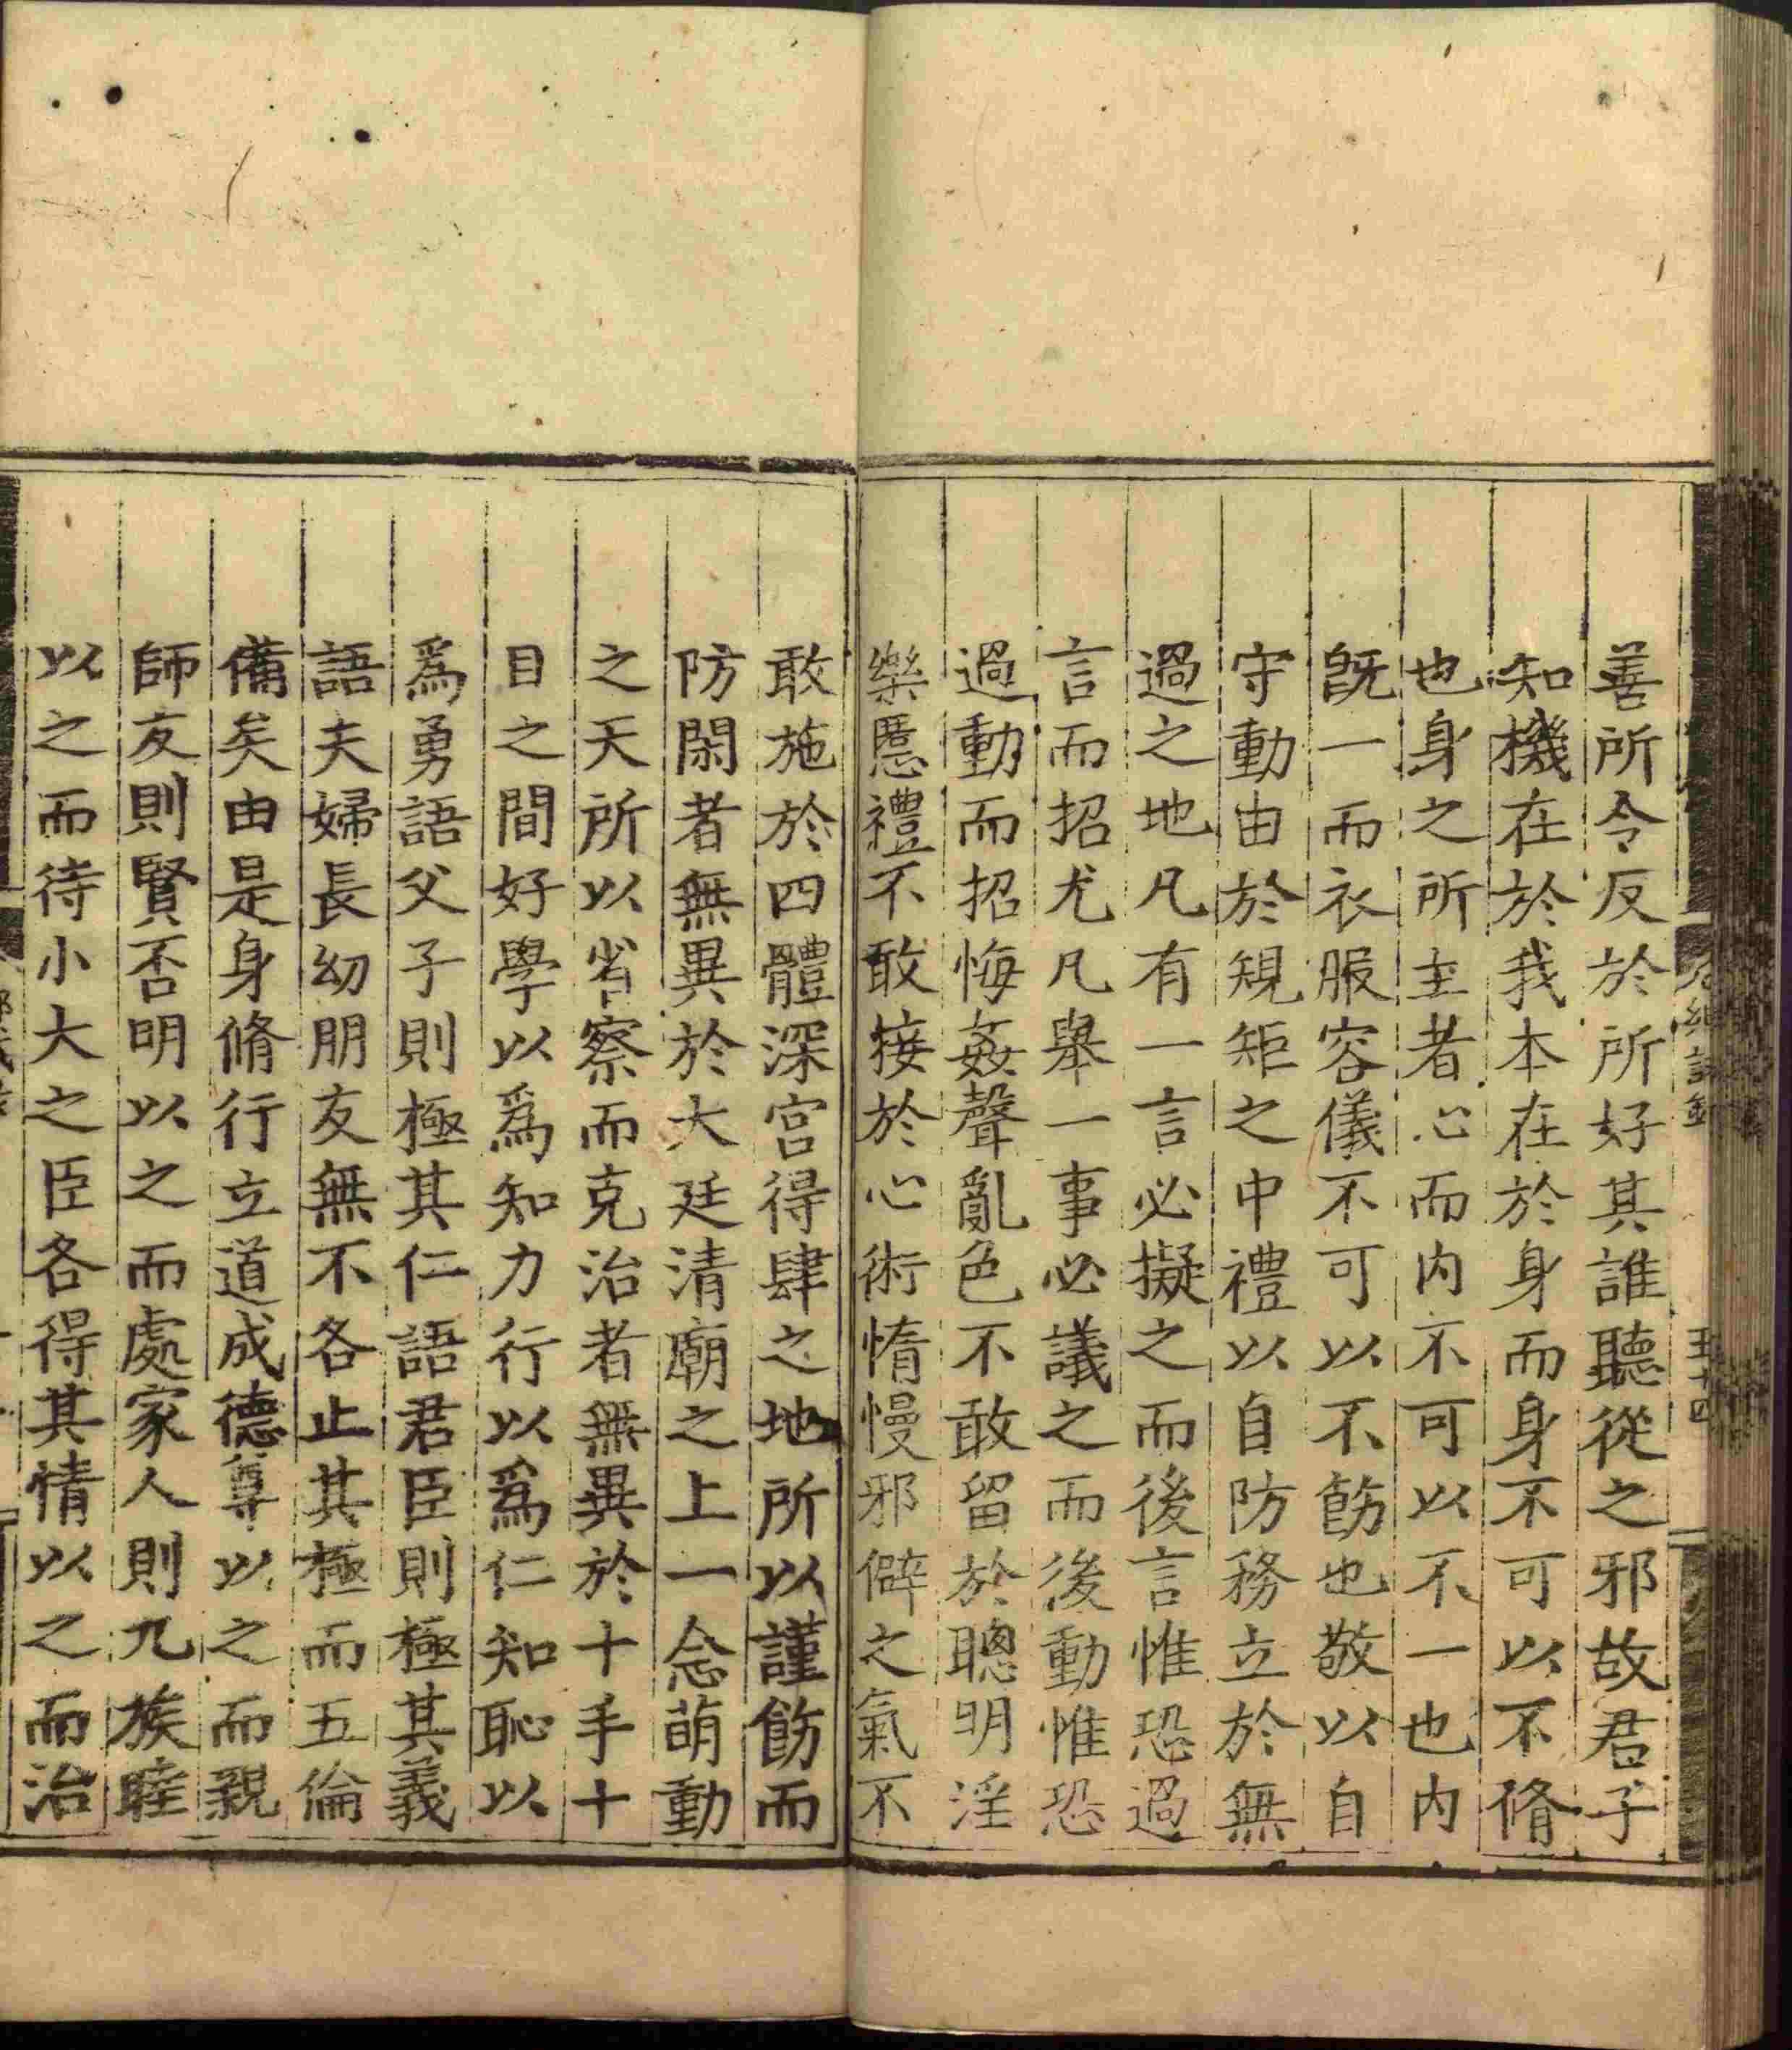 善所令反於所好其誰聽從之邪故君子
知機在於我本在於身而身不可以不脩
也身之所主者心而内不可以不一也内
旣一而衣服容儀不可以不飭也敬以自
守動由於規矩之中禮以自防務立於無
過之地凡有一言必擬之而後言惟恐過
言而招尤凡舉一事必議之而後動惟恐
過動而招悔姦聲亂色不敢留於聰明淫
樂慝禮不敢接於心術惰慢邪僻之氣不
敢施於四體深宮得肆之地所以謹飭而
防閑者無異於大廷清廟之上一念萌動
之天所以省察而克治者無異於十手十
目之間好學以爲知力行以爲仁知恥以
爲勇語父子則極其仁語君臣則極其義
語夫婦長幼朋友無不各止其極而五倫
備矣由是身脩行立道成德尊以之而親
師友則賢否明以之而處家人則九族睦
以之而待小大之臣各得其情以之而治
五十四